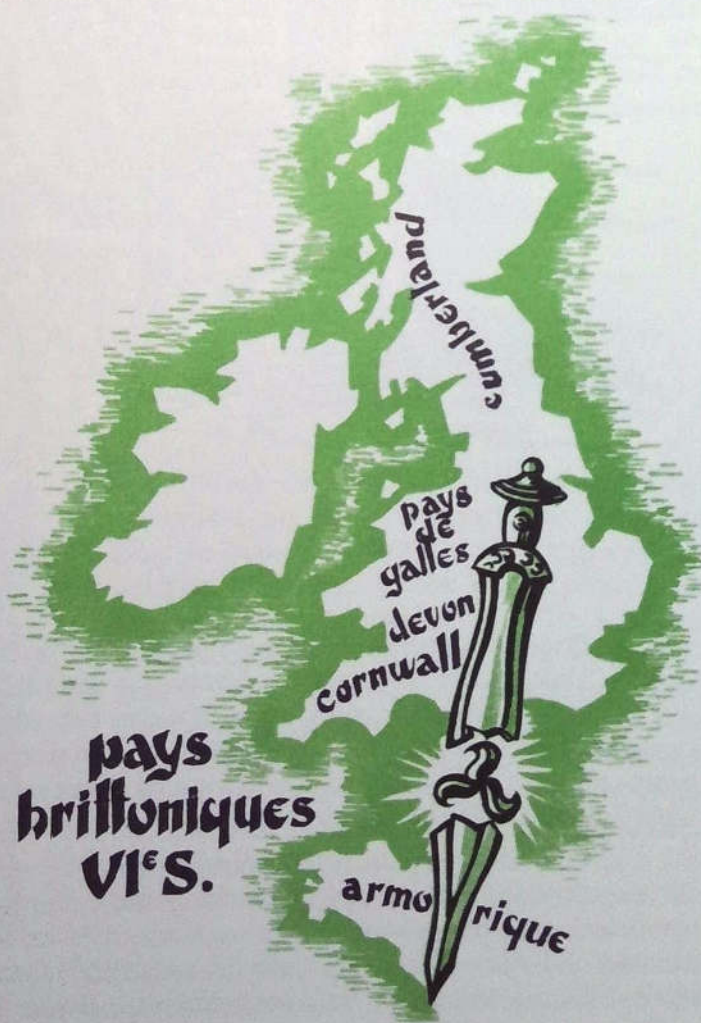 cumberland
pays
de
galles
devon
cornwall
pays
brittoniques
VIe S.
armorique